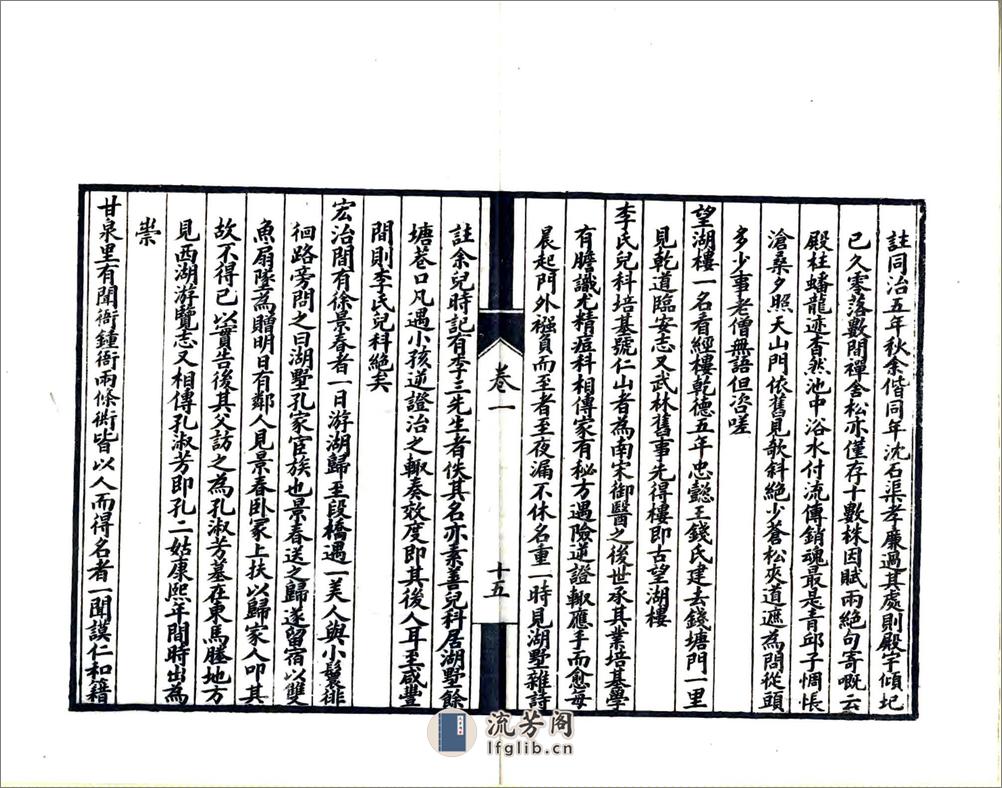 註同治五年秋余偕同年沈石渠孝廉過其處則殿宇傾圮
已久零落數間禪舍松亦僅存十數株因賦兩絕句寄嘅云
殿柱蟠龍迹杳然池中浴水付流傳銷魂最是青邱子惆悵
滄桑夕照天山門依舊見欹斜絕少蒼松夾道遮為問從頭
多少事老僧無語但咨嗟
望湖樓一名看經樓乾德五年忠懿王錢氏建去錢塘門一里
見乾道臨安志又武林舊事先得樓即古望湖樓
李氏兒科培基號仁山者為南宋御醫之後世承其業培基學
有膽識尤精痘科相傳家有秘方遇險逆證輙應手而愈每
晨起門外襁負而至者至夜漏不休名重一時見湖墅雜詩
卷一
十五
註余兒時記有李三先生者佚其名亦素善兒科居湖墅餘
塘巷口凡遇小孩逆證治之輙奏效度即其後人耳至咸豐
間則李氏兒科絕矣
宏治間有徐景春者一日游湖歸至段橋遇一美人與小鬟徘
徊路旁問之曰湖墅孔家宦族也景春送之歸遂留宿以雙
魚扇墜為贈明日有鄰人見景春臥冢上扶以歸家人叩其
故不得已以實告後其父訪之為孔淑芳墓在東馬塍地方
見西湖游覽志又相傳孔淑芳即孔二姑康熙年間時出為
祟
甘泉里有聞衙鍾衙兩條衖皆以人而得名者一聞謨仁和籍
流芳阁
lfglib.cn